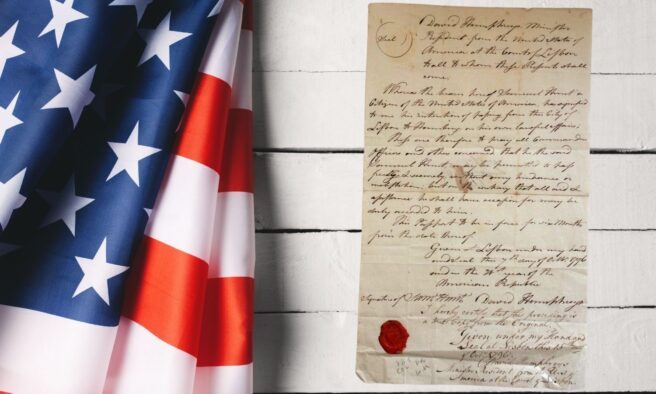 David Humphreys Minister
(Seal) Resident from the United States of
America at the Court of Lisbon
to all to whom these Presents shall
come.
Whereas the bearer hereof
Citizen of the United States of America, has
to me his intention of from this City of
Lisbon to Hamburg on his own lawful affairs,
These are therefore to pray all Commanders
officers and others that he the said
may be permitted to pass
freely & securely without any hindrance or
molestation, but on the contrary that all
assistance he shall have occasion for may be
duly to him.
This Passport to be in force for six Months
from the date thereof.
Given at Lisbon under my hand
and seal this 7th day of Octr. 1796
and in the year of the
American Republic
Signature of David Humphreys
I hereby certify that the preceding is
a true Copy from the Original.
Given under my Hand and
Seal at Lisbon this
of Octr. 1796
David Humphreys
Minister Resident from the U. S. of
America at the Court of Lisbon